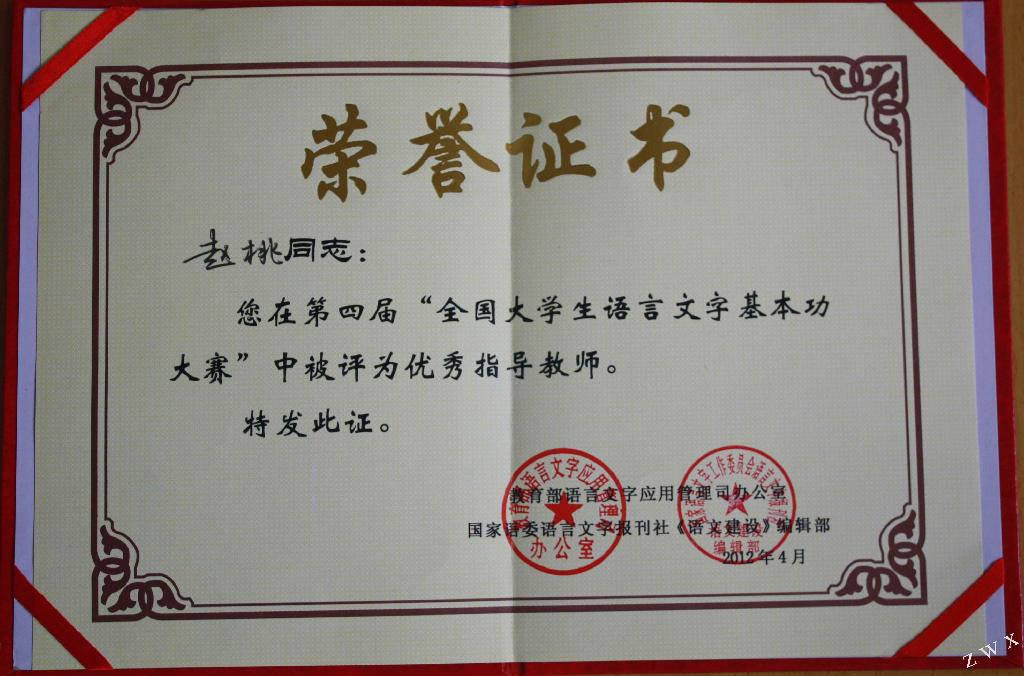 荣誉证书
赵桃同志：
您在第四届“全国大学生语言文字基本功
大赛”中被评为优秀指导教师。
特发此证。
教育部语言文字应用管理司办公室
国家语委语言文字报刊社《语文建设》编辑部
2012年4月
教育部语言文字应用管理司
办公室
语文建设
编辑部
zwx